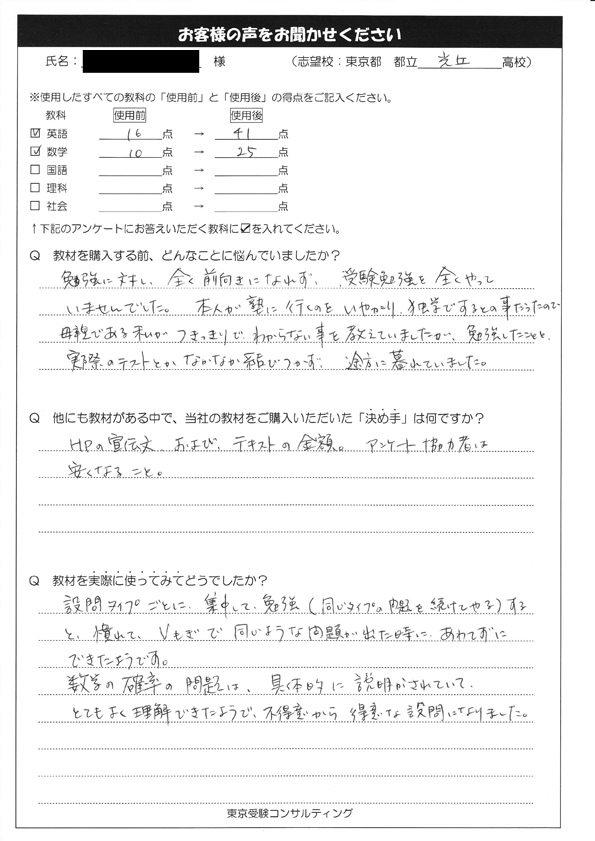 お客様の声をお聞かせください
氏名： 様 （志望校：東京都 都立 光丘 高校）
※使用したすべての教科の「使用前」と「使用後」の得点をご記入ください。
教科 使用前 使用後
☑ 英語 16 点 → 41 点
☑ 数学 10 点 → 25 点
□ 国語 点 → 点
□ 理科 点 → 点
□ 社会 点 → 点
↑下記のアンケートにお答えいただく教科に☑を入れてください。
Q 教材を購入する前、どんなことに悩んでいましたか？
勉強に対し、全く前向きになれず、受験勉強を全くやって
いませんでした。本人が塾に行くのをいやがり、独学でするとの事だったので
母親である私がつきっきりで、わからない事を教えていましたが、勉強したことと、
実際のテストとがなかなか結びつかず、途方に暮れていました。
Q 他にも教材がある中で、当社の教材をご購入いただいた「決め手」は何ですか？
HPの宣伝文、および、テキストの金額。アンケート協力者は
安くなること。
Q 教材を実際に使ってみてどうでしたか？
設問タイプごとに、集中して、勉強（同じタイプの問題を続けてやる）する
と、慣れて、Vもぎで同じような問題が出た時に、あわてずに
できたようです。
数学の確率の問題は、具体的に説明がされていて、
とてもよく理解できたようで、不得意から得意な設問になりました。
東京受験コンサルティング